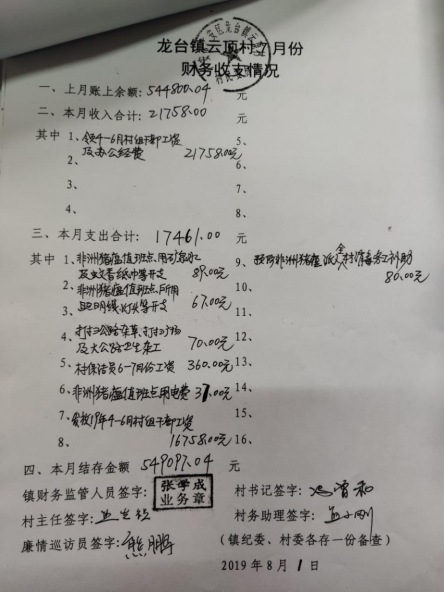 龙台镇云顶村7月份
财务收支情况
一、上月账上余额: 544800.04 元
二、本月收入合计: 21758.00 元
其中 1、领4-6月村组干部工资 5、
及办公经费 21758.00元
2、 6、
3、 7、
4、 8、
三、本月支出合计: 17461.00 元
其中 1、非洲猪瘟值班点用
及蚊香纸巾等开支 89.00元
9、预防非洲猪瘟 全村消毒务工补助
80.00元
2、非洲猪瘟值班点所用
照明线灯头等开支 67.00元
10、
11、
3、
及大公路卫生杂工 70.00元
12、
4、
5、村保洁员6-7月份工资 360.00元 13、
6、非洲猪瘟值班点用电费 37.00元 14、
7、发放19年4-6月村组干部工资 15、
8、 16758.00元 16、
四、本月结存金额 549097.04 元
镇财务监管人员签字: 张学成
业务章
村书记签字:
村主任签字:
村务助理签字:
廉情巡访员签字: 熊鹏
(镇纪委、村委各存一份备查)
2019年8月1日